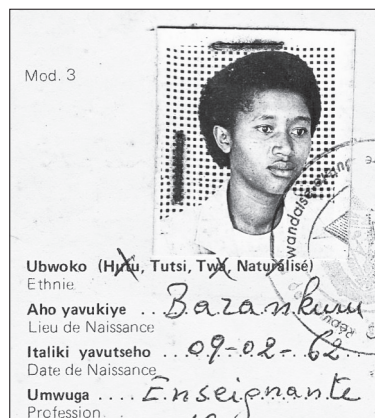 Mod. 3
Ubwoko (Hutu, Tutsi, Twa, Naturalisé)
Ethnie
Aho yavukiye ... Barankuru
Lieu de Naissance
Italiki yavutseho ... 09-02-62
Date de Naissance
Umwuga .... Enseignante
Profession